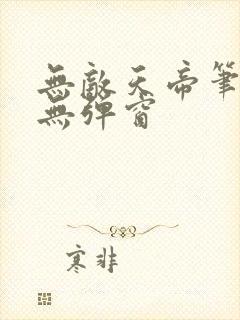 無敵天帝筆
無彈窗
寒非